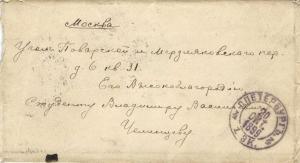 Москва
Уголъ Поварской и Мерзляковского пер.
д. 6 кв. 31.
Его Высокоблагородію
Студенту Владиміру Васил
С.ПЕТЕРБУРГЪ